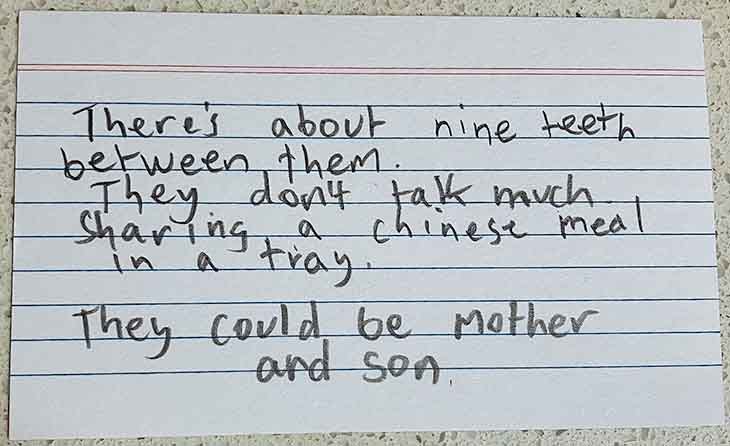 There's about nine teeth
between them.
They don't talk much
sharing a chinese meal
in a tray.
They could be mother
and son.